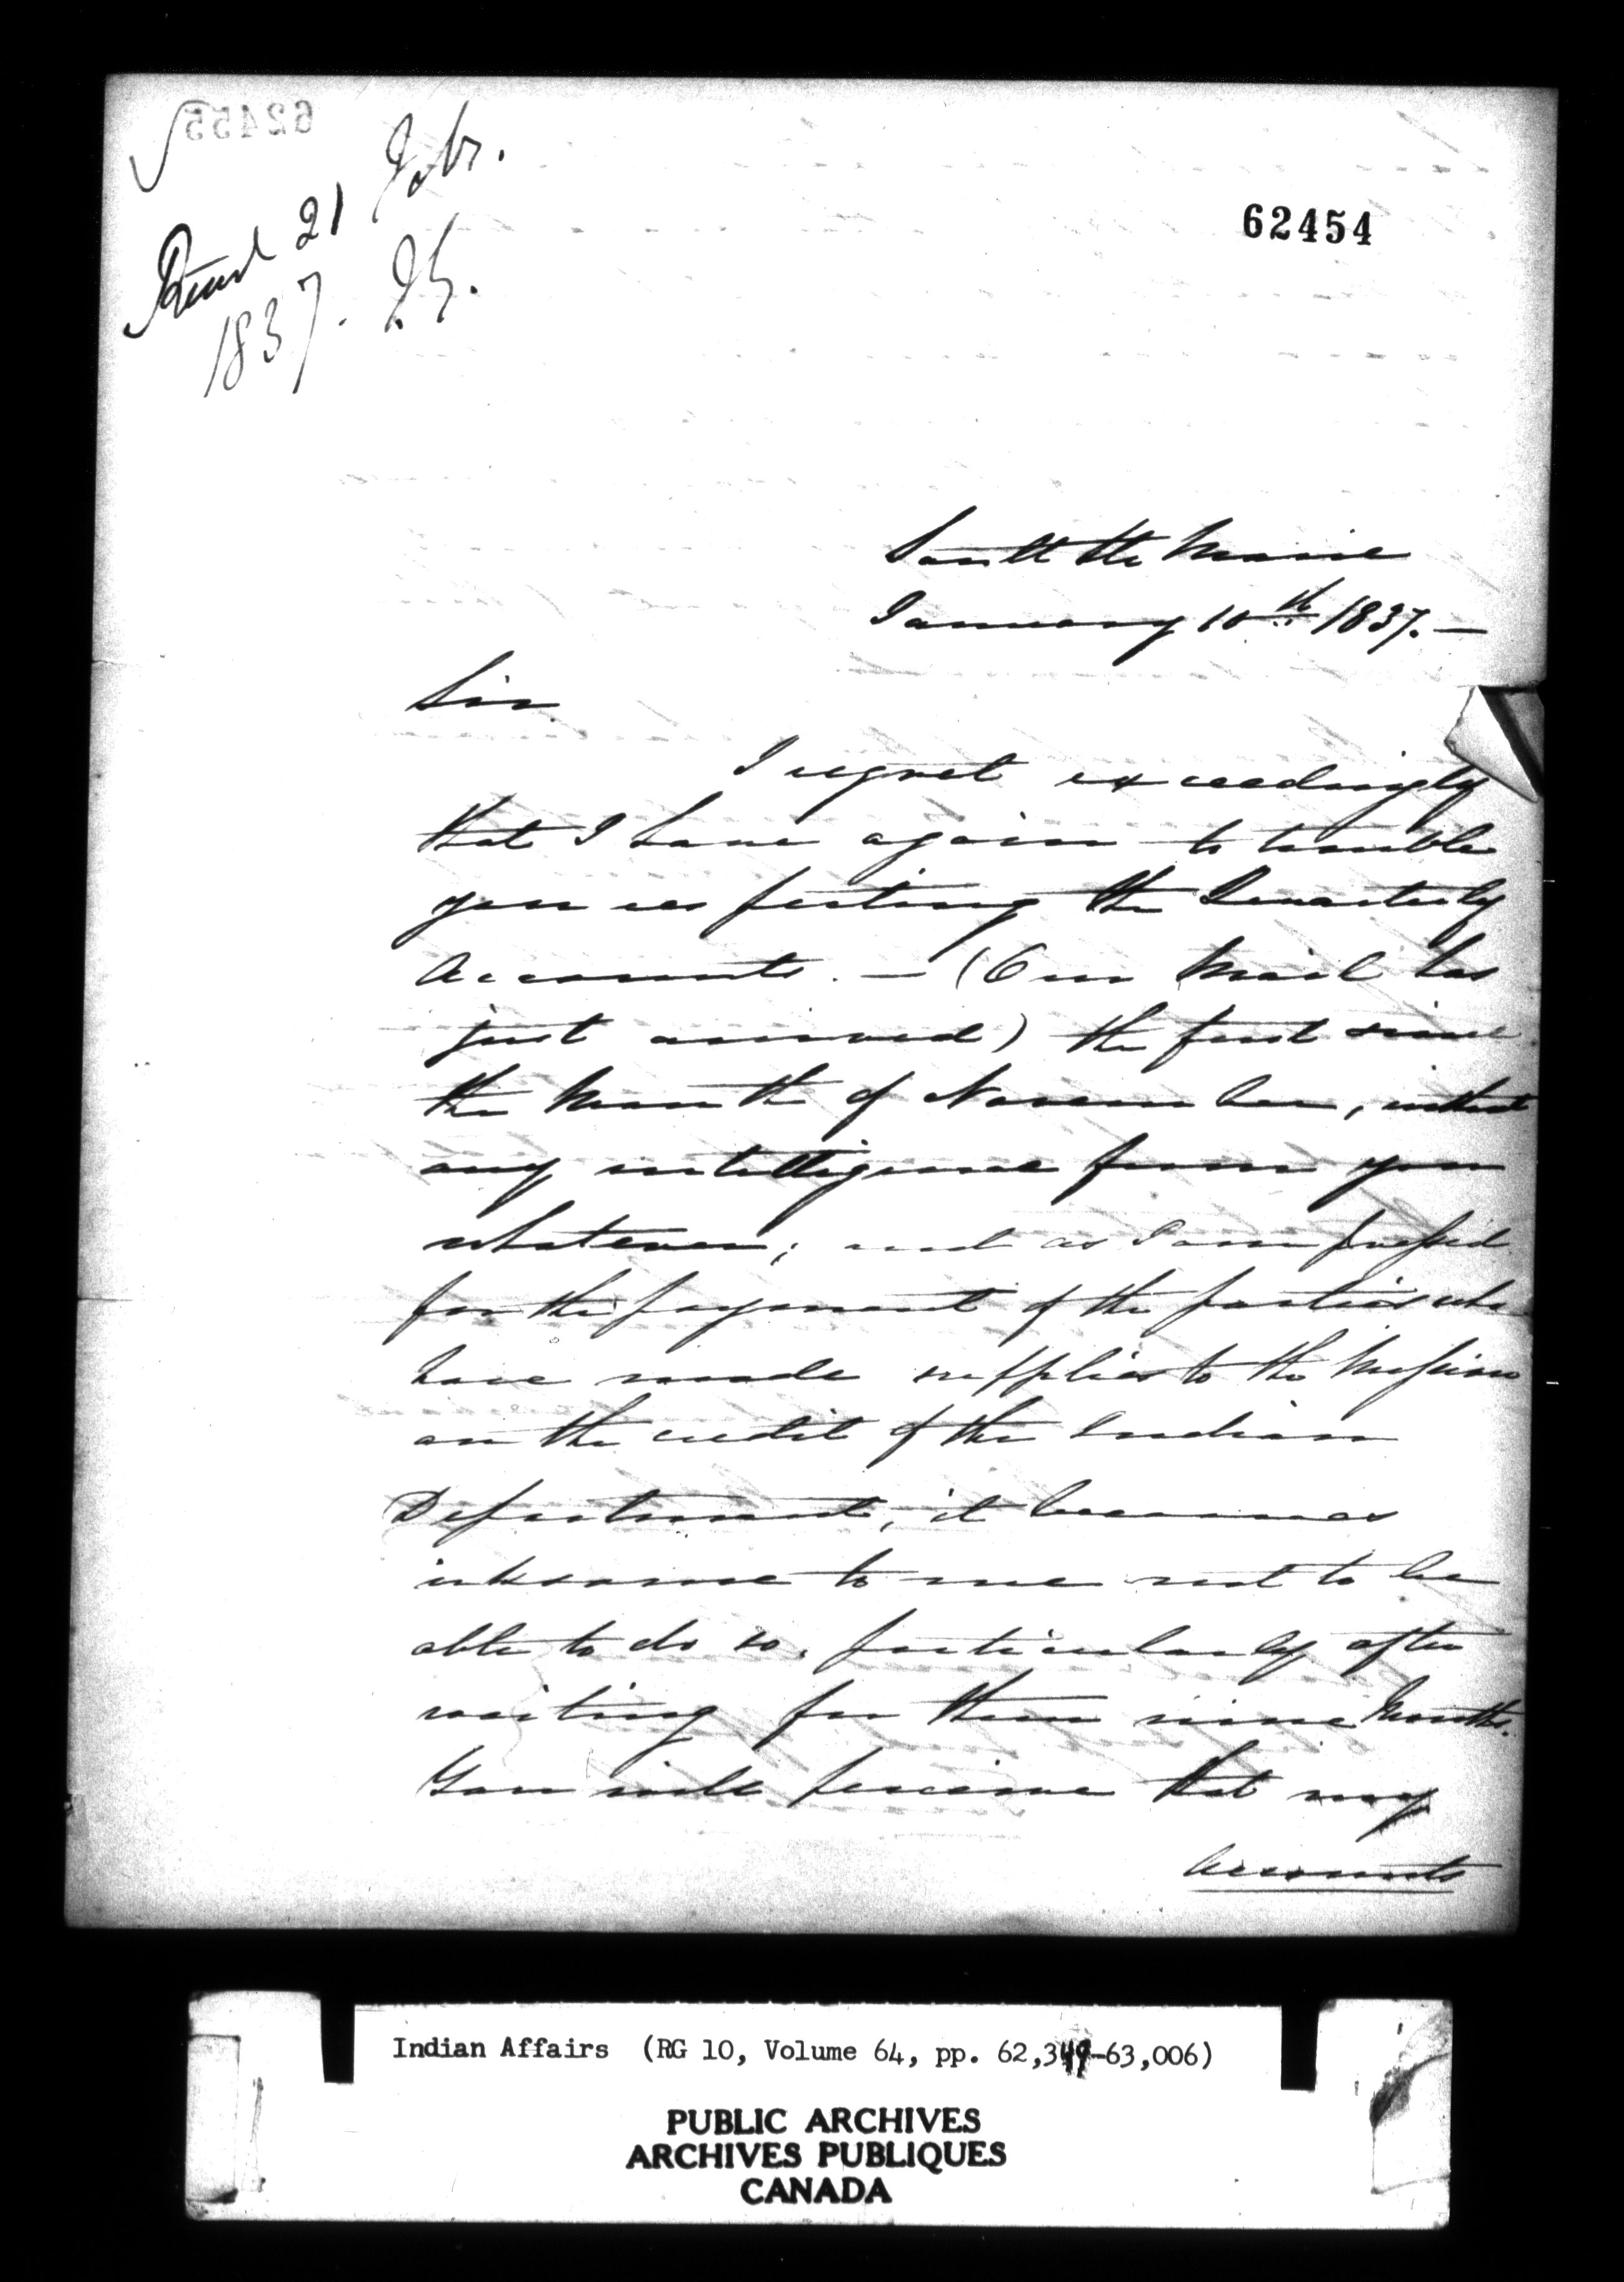 62455
Recd 21 Febr.
1837.
62454
Sault Ste Marie
January 10th 1837.—
Sir
I regret exceedingly
that I have again to trouble
you respecting the Quarterly
Accounts. — (Our Mail has
just arrived) the first since
the Month of November, without
any intelligence from you
whatever; and as I am pressed
for the payment of the parties who
have made supplies to the Mission
on the credit of the Indian
Department, it becomes
irksome to me not to be
able to do so, particularly after
waiting for them nine Months.
You will perceive that my
Accounts
Indian Affairs (RG 10, Volume 64, pp. 62,349-63,006)
PUBLIC ARCHIVES
ARCHIVES PUBLIQUES
CANADA